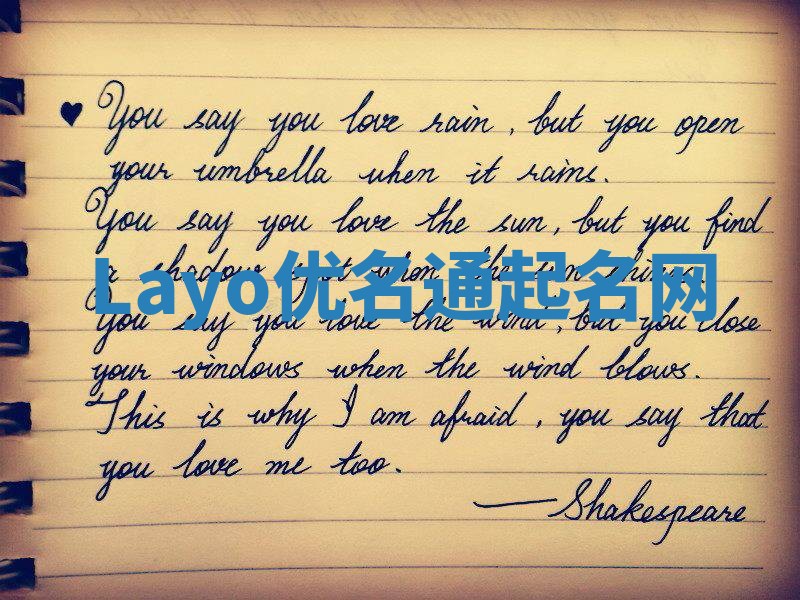 ♥ You say you love rain, but you open
your umbrella when it rains.
You say you love the sun, but you find
a shadow spot when the sun shines.
Layo优名通起名网
You say you love the wind, but you close
your windows when the wind blows.
This is why I am afraid, you say that
you love me too.
— Shakespeare